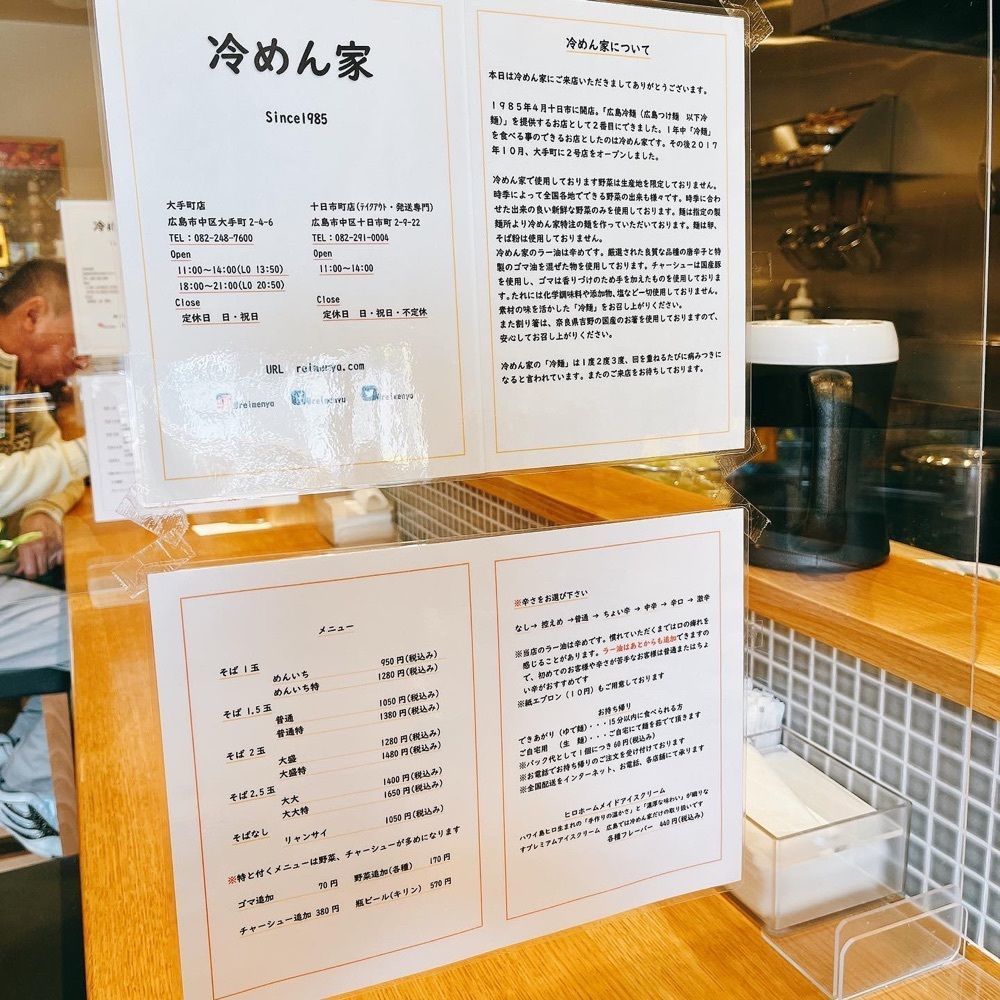 冷めん家
Since1985
大手町店
広島市中区大手町2-4-6
TEL：082-248-7600
Open
11:00〜14:00(LO 13:50)
18:00〜21:00(LO 20:50)
Close
定休日　日・祝日
十日市町店(テイクアウト・発送専門)
広島市中区十日市町2-9-22
TEL：082-291-0004
Open
11:00〜14:00
Close
定休日　日・祝日・不定休
URL　reimenya.com
@reimenya
@reimenya
@reimenya
冷めん家について
本日は冷めん家にご来店いただきましてありがとうございます。
１９８５年４月十日市に開店。「広島冷麺（広島つけ麺　以下冷
麺）」を提供するお店として２番目にできました。１年中「冷麺」
を食べる事のできるお店としたのは冷めん家です。その後２０１７
年１０月、大手町に２号店をオープンしました。
冷めん家で使用しております野菜は生産地を限定しておりません。
時季によって全国各地でできる野菜の出来も様々です。時季に合わ
せた出来の良い新鮮な野菜のみを使用しております。麺は指定の製
麺所より冷めん家特注の麺を作っていただいております。麺は卵、
そば粉は使用しておりません。
冷めん家のラー油は辛めです。厳選された良質な品種の唐辛子と特
製のゴマ油を混ぜた物を使用しております。チャーシューは国産豚
を使用し、ゴマは香りづけのため手を加えたものを使用しておりま
す。たれには化学調味料や添加物、塩など一切使用しておりません。
素材の味を活かした「冷麺」をお召し上がりください。
また割り箸は、奈良県吉野の国産のお箸を使用しておりますので、
安心してお召し上がりください。
冷めん家の「冷麺」は１度２度３度、回を重ねるたびに病みつきに
なると言われています。またのご来店をお待ちしております。
メニュー
そば１玉
めんいち　950円(税込み)
めんいち特　1280円(税込み)
そば 1.5玉
普通　1050円(税込み)
普通特　1380円(税込み)
そば２玉
大盛　1280円(税込み)
大盛特　1480円(税込み)
そば2.5玉
大大　1400円(税込み)
大大特　1650円(税込み)
そばなし　リャンサイ　1050円(税込み)
※特と付くメニューは野菜、チャーシューが多めになります
ゴマ追加　70円　野菜追加(各種)　170円
チャーシュー追加 380円　瓶ビール(キリン)　570円
※辛さをお選び下さい
なし→ 控えめ →普通 → ちょい辛 → 中辛 → 辛口 → 激辛
※当店のラー油は辛めです。慣れていただくまでは口の痺れを
感じることがあります。ラー油はあとからも追加できますの
で、初めてのお客様や辛さが苦手なお客様は普通またはちょ
い辛がおすすめです
※紙エプロン（１０円）もご用意しております
お持ち帰り
できあがり（ゆで麺）・・・15分以内に食べられる方
ご自宅用　（生　麺）・・・ご自宅にて麺を茹でて頂きます
※パック代として１個につき60円(税込み)
※お電話でお持ち帰りのご注文を受け付けております
※全国配送をインターネット、お電話、各店舗にて承ります
ヒロホームメイドアイスクリーム
ハワイ島ヒロ生まれの「手作りの温かさ」と「濃厚な味わい」が織りな
すプレミアムアイスクリーム　広島では冷めん家だけの取り扱いです
各種フレーバー　440円(税込み)